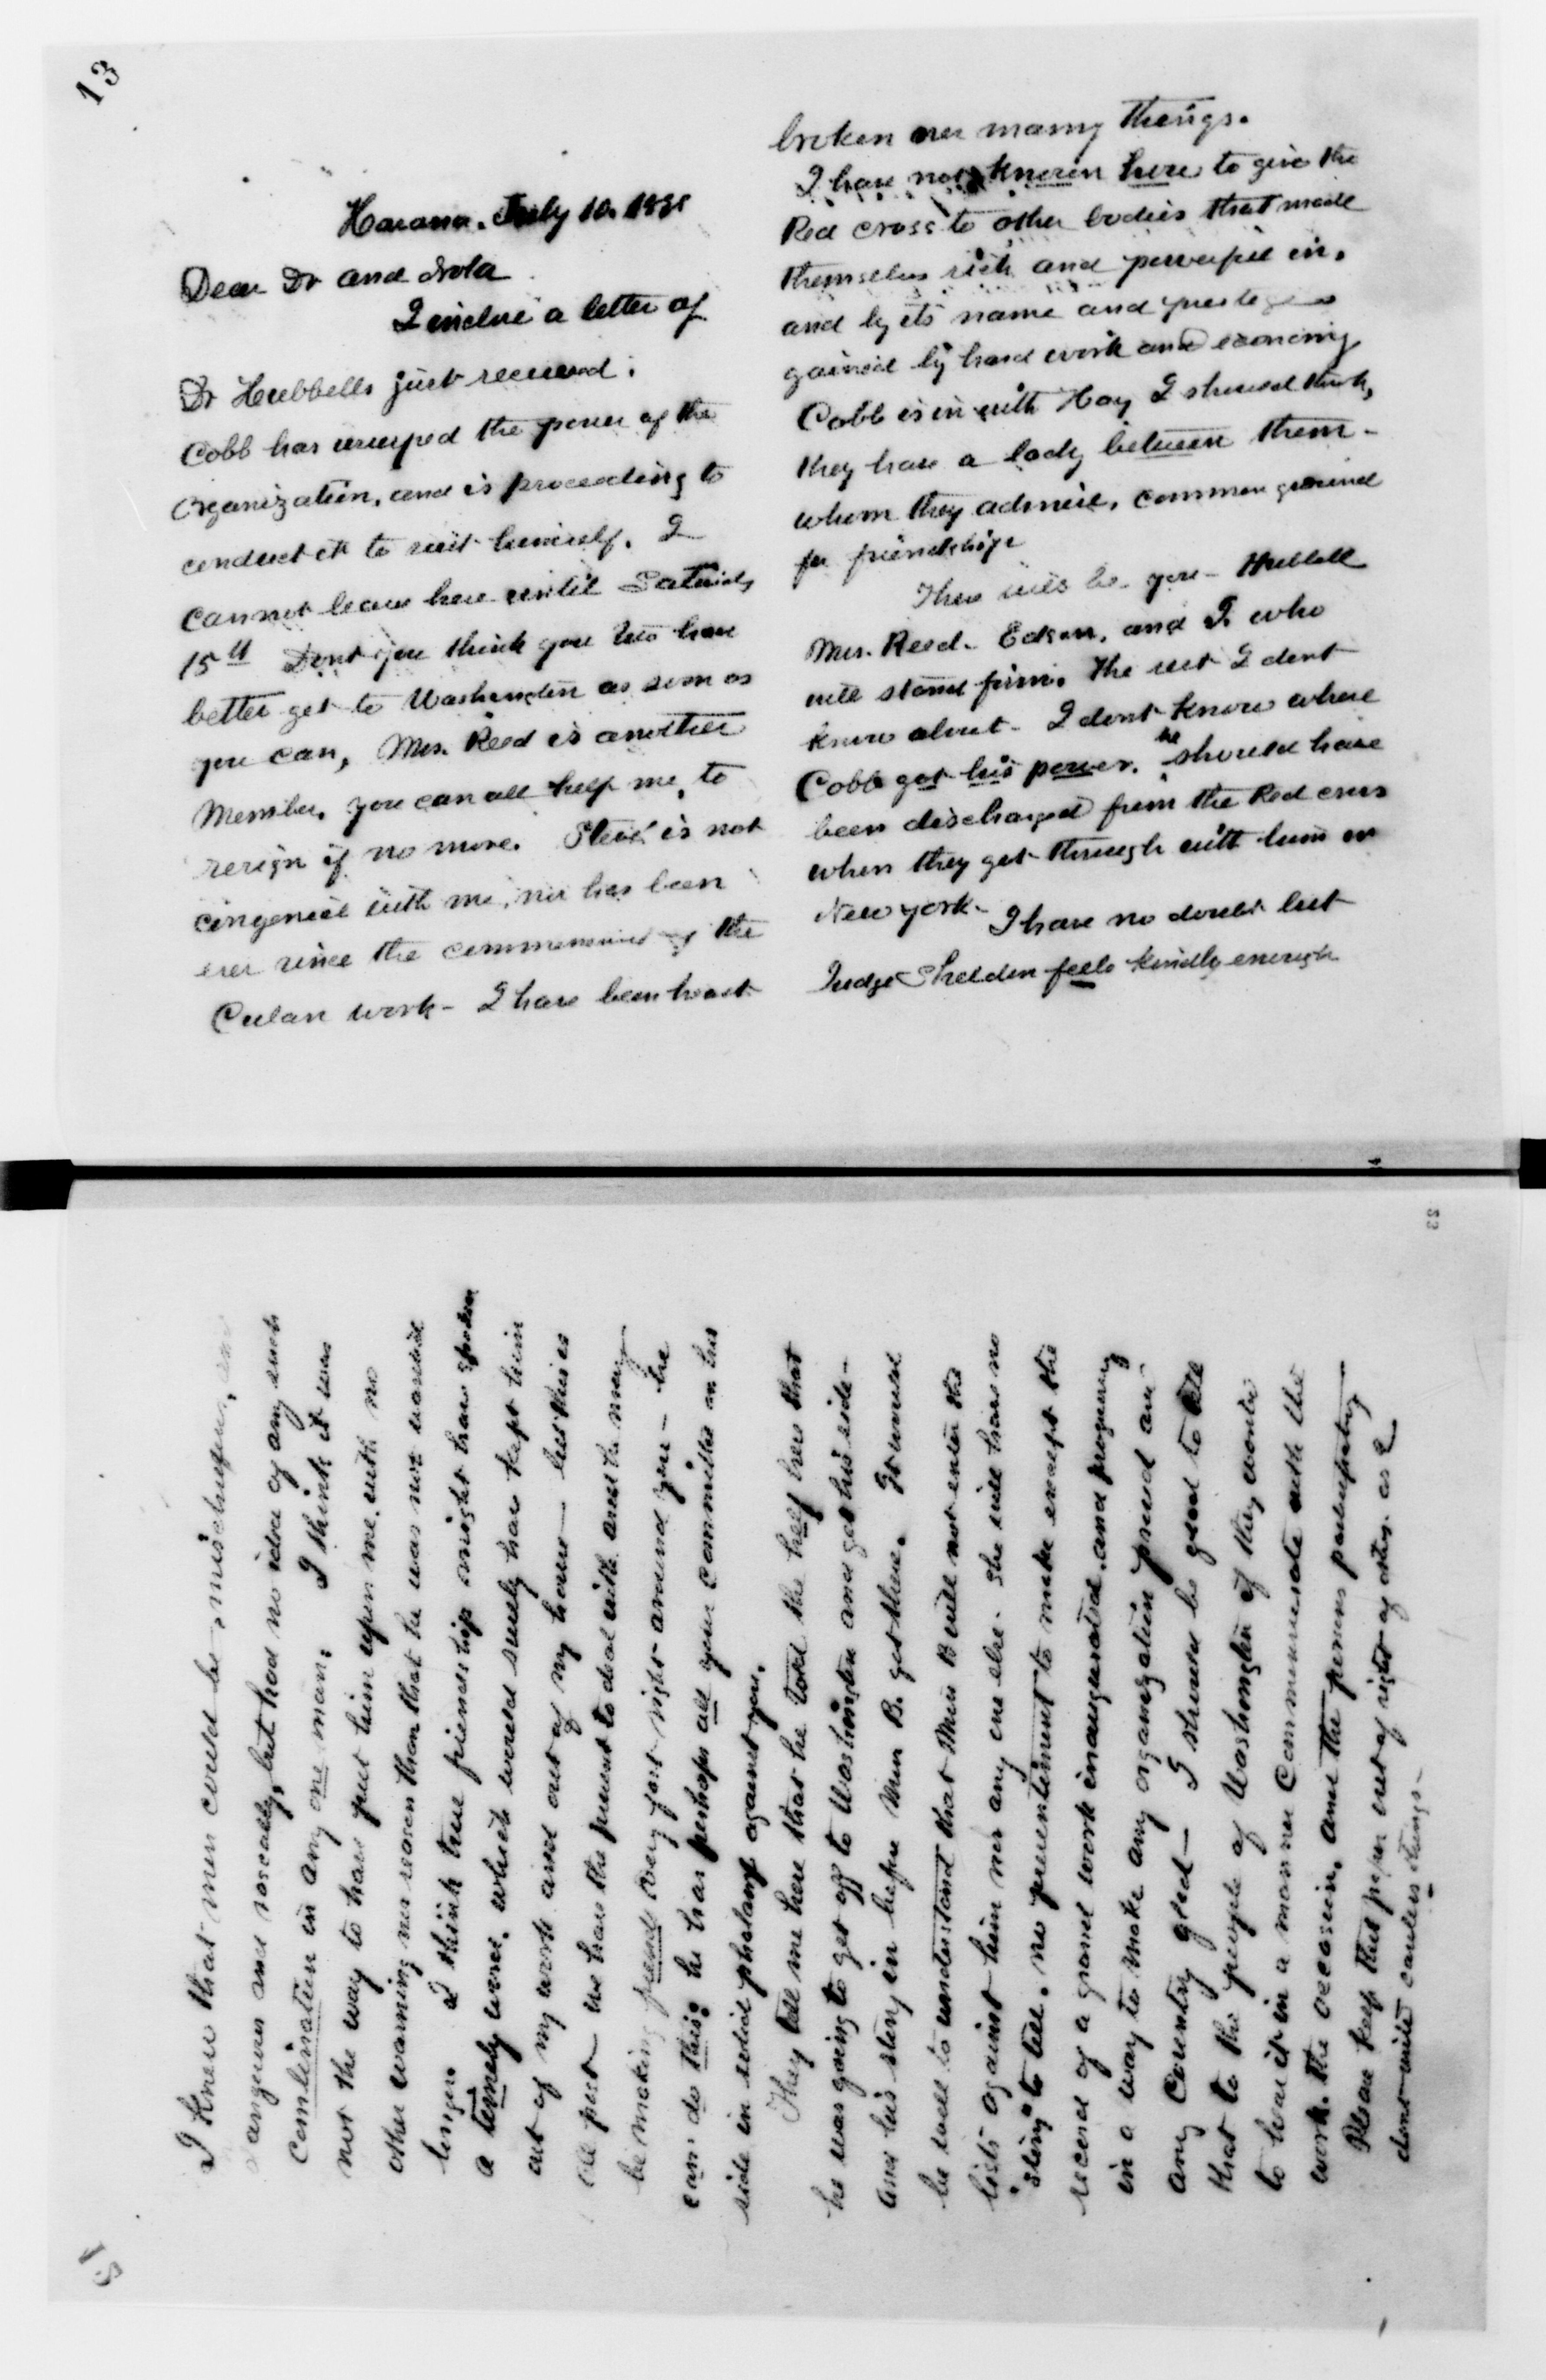 13
Havana. July 10. 1898
Dear Dr and Lola
I inclose a letter of
Dr Hubbells just received.
Cobb has usurped the power of the
organization, and is proceeding to
conduct it to suit himself. I
cannot leave here until Saturday
15th Dont you think you two have
better get to Washington as soon as
you can, Mrs. Reed is another
Member, you can all help me, to
resign if no more. is not
congenial with me, nor has been
ever since the commencement of the
Cuban work - I have been heart
broken over many things.
I have not known how to give the
Red cross to other bodies that made
themselves rich and powerful in,
and by its name and prestige
gained by hard work and economy
Cobb is in with Hay I should think,
they have a lady between them -
whom they admire, common ground
for friendship
There will be you - Hubbell
Mrs. Reed - Edson, and I. who
will stand firm. The rest I dont
know about - I dont know where
Cobb got his power. he should have
been discharged from the Red cross
when they got through with him in
New york - I have no doubt but
Judge Sheldon feels kindly enough
23
I knew that men could be mischievous, and
dangerous and rascally, but had no idea of any such
combination in any one man. I think it was
not the way to have put him upon me, with no
other warning nor reason than that he was not wanted
longer. I think true friendship might have spoken
a timely word, which would surely have kept him
out of my work and out of my house - but this is
all past - we have the present to deal with and he may
be making friends every fort night around you - he
can do this. he has perhaps all your committee on his
side in solid phalanx against you.
They tell me here that he told the help here that
he was going to get off to Washington and get his side -
and his story in before Miss B. got there. It would
be well to understand that Miss B will not enter the
lists against him nor any one else. She will have no
"story" to tell. no presentiment to make except the
record of a grand work inaugurated, and progressing
in a way to make any organization proud and
any Country glad - I should be glad to tell
that to the people of Washington if they wanted
to hear it in a manner Commensurate with the
work, the occasion, and the persons participating -
Please keep this paper out of sight of others. as I
dont write careless things -
18